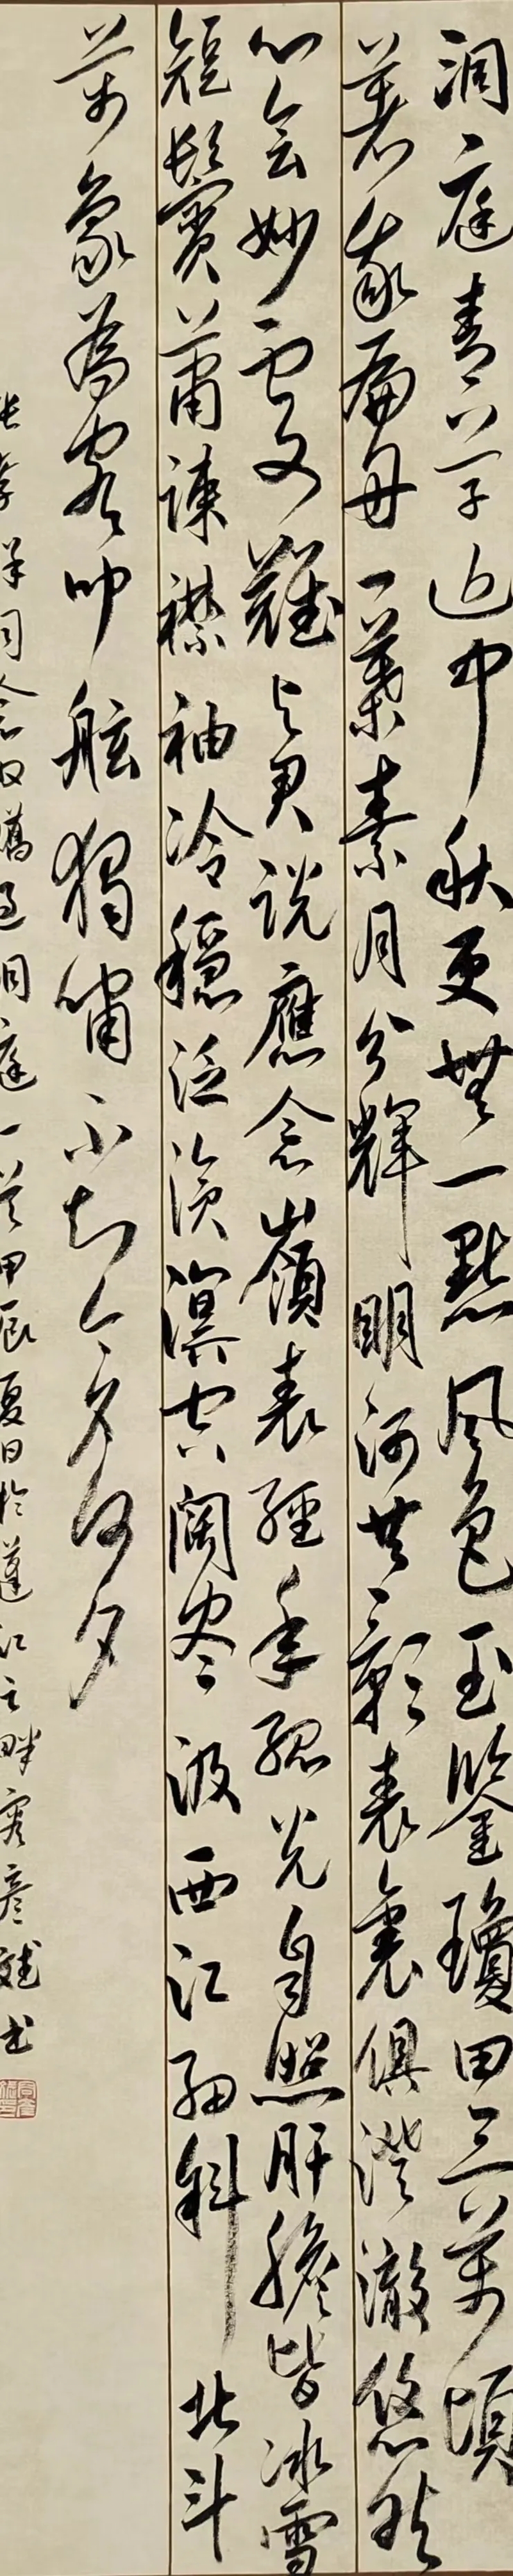 洞庭青草近中秋更無一點風色玉鑒瓊田三萬頃
著我扁舟一葉素月分輝明河共影表裏俱澄澈悠然
心会妙處難与君説應念嶺表經年孤光自照肝膽皆冰雪
短鬢蕭疎襟袖冷穩泛滄溟空闊盡汲西江細斟北斗
萬象為客叩舷獨嘯不知今夕何夕
張孝祥詞念奴嬌過洞庭一首甲辰夏日於蓮江之畔彥斌書